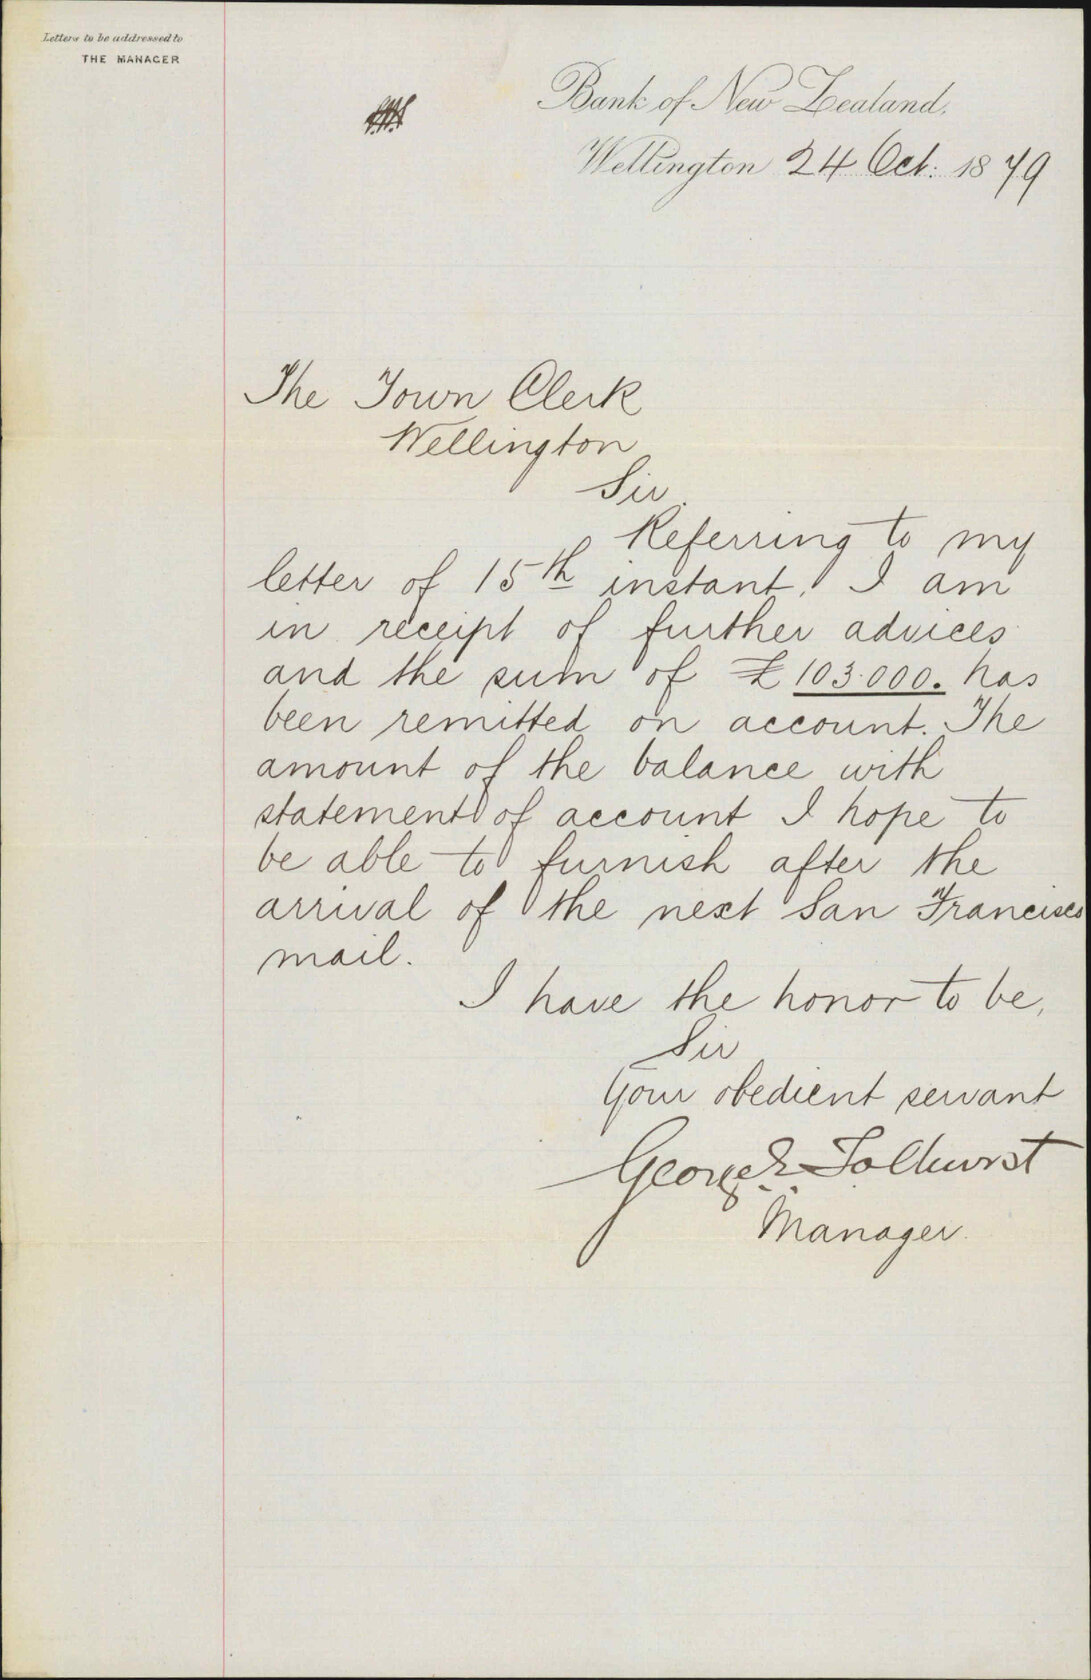 Letters to be addressed to
THE MANAGER
Bank of New Zealand,
Wellington 24 Oct: 1879
The Town Clerk
Wellington
Sir,
Referring to my
letter of 15th instant, I am
in receipt of further advices
and the sum of £103.000. has
been remitted on account. The
amount of the balance with
statement of account I hope to
be able to furnish after the
arrival of the next San Francisco
mail.
I have the honor to be,
Sir
Your obedient servant
George E. Tolhurst
Manager.